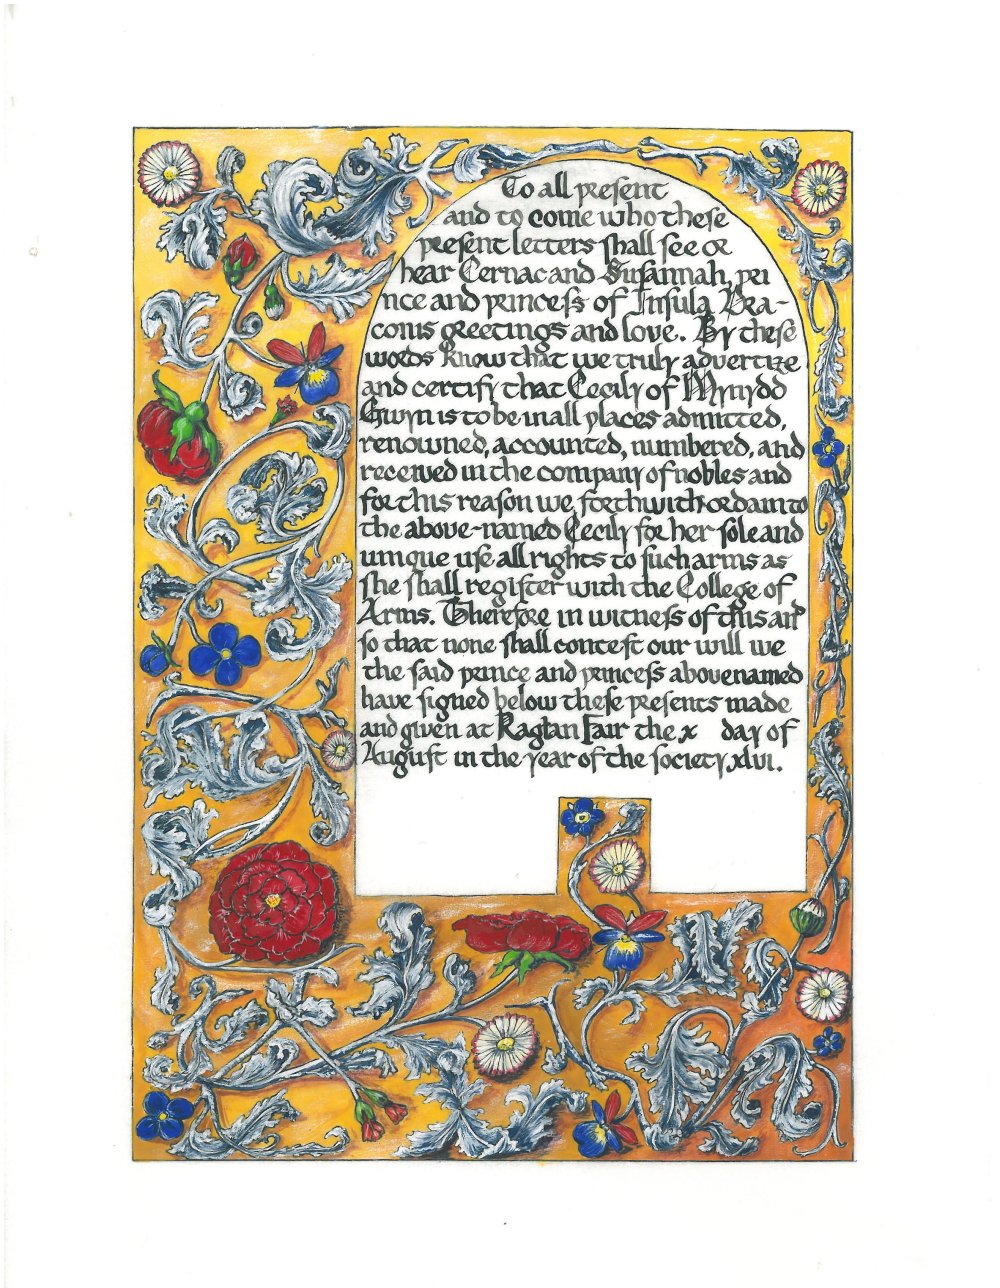 To all present
and to come who these
present letters shall see or
hear Cernac and Susannah, pri
nce and princess of Insula Dra-
conis greetings and love. By these
words know that we truly advertize
and certify that Cecily of Mynydd
Gwyn is to be in all places admitted,
renowned, accounted, numbered, and
received in the company of nobles and
for this reason we forthwith ordain to
the above-named Cecily for her sole and
unique use all rights to such arms as
she shall register with the College of
Arms. Therefore in witness of this and
so that none shall contest our will we
the said prince and princess abovenamed
have signed below these presents made
and given at Raglan Fair the x day of
August in the year of the society xlvi.